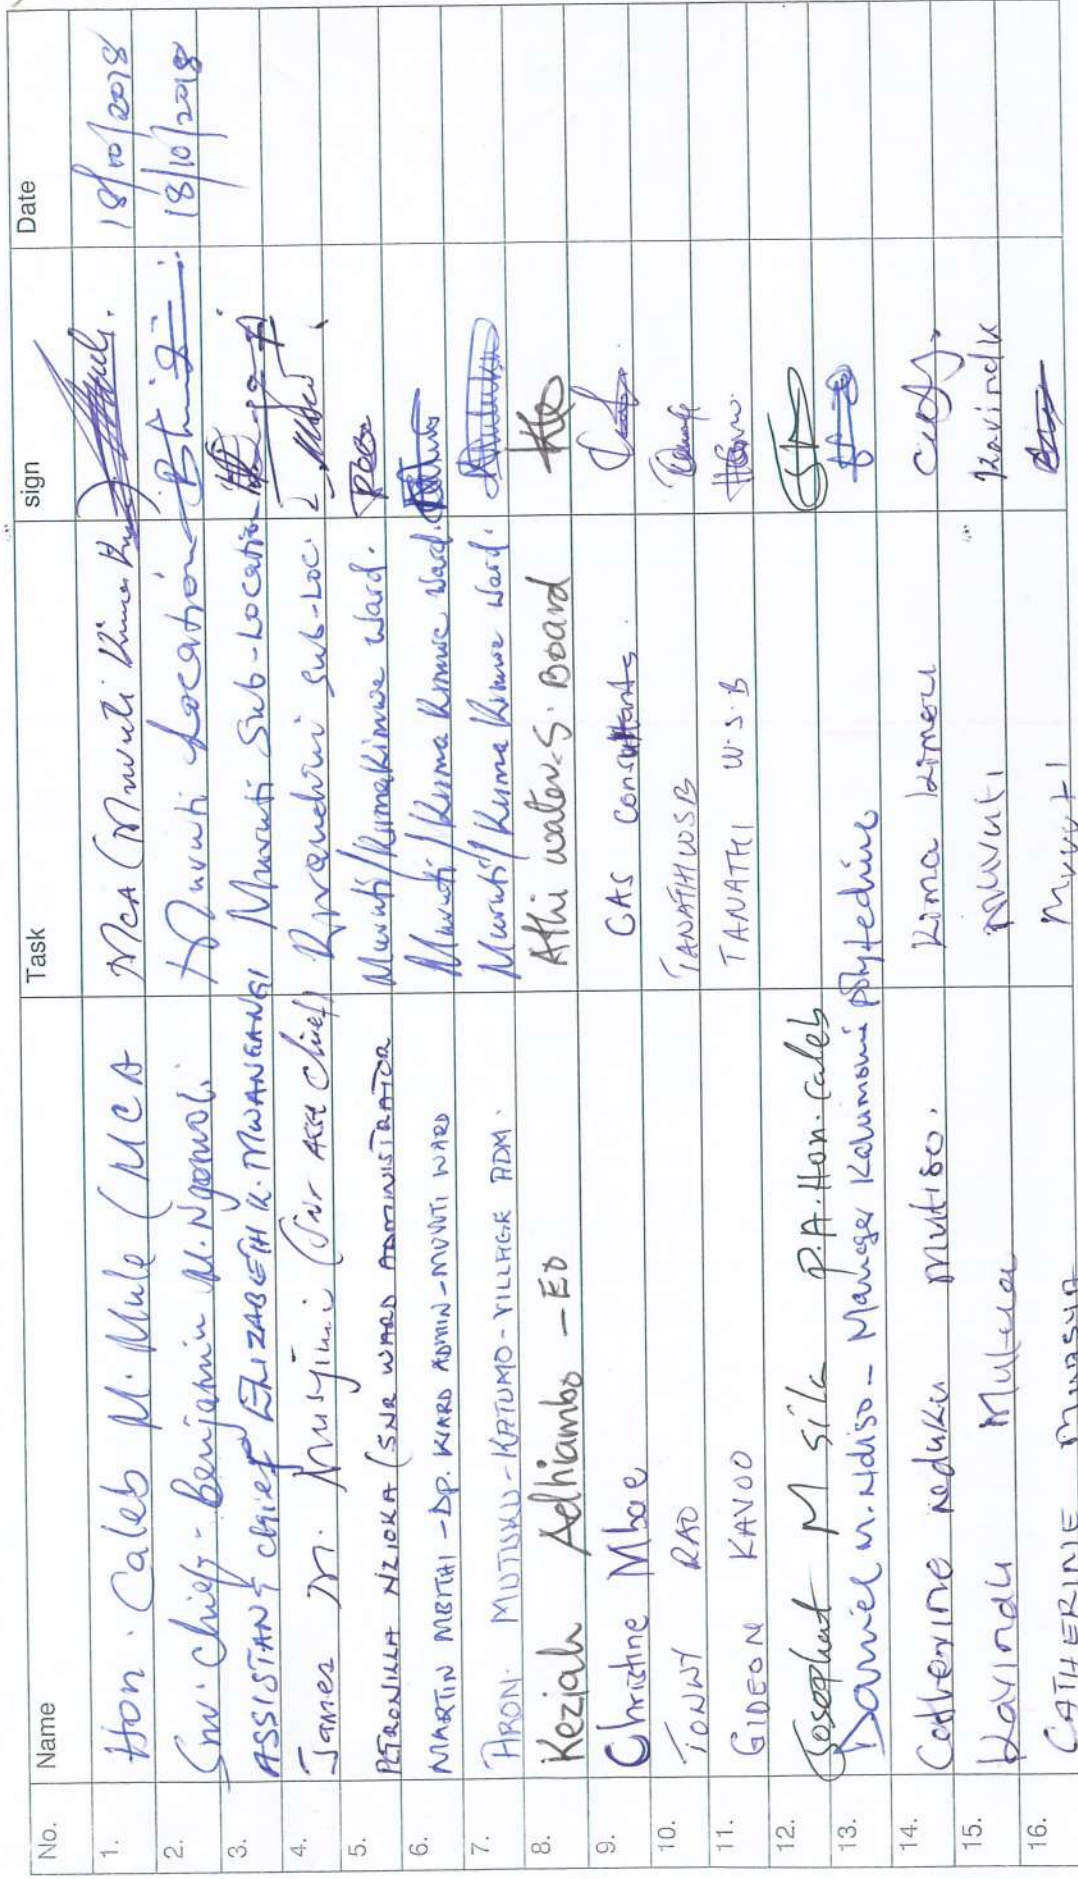 No. Name Task sign Date
1. Hon. Caleb M. Mule (MCA MCA (Muvuti 18/10/2018
2. Snr. Chief - Benjamin M. Ngomoli Muvuti Location 18/10/2018
3. ASSISTANT chief ELIZABETH K. MWANGANGI Muvuti Sub-Location
4. James M. Musyimi (Snr Asst Chief) Sub-Loc
5. PETRONILLA NZIOKA (SNR WARD ADMINISTRATOR Muvuti/KimaKimwe Ward.
6. MARTIN MBITHI - DP. WARD ADMIN - MUVUTI WARD Muvuti/Kima Kimwe Ward.
7. ARON MUTUKU - KATUMO - VILLAGE ADM. Muvuti/Kima Kimwe Ward. Mutuku
8. Keziah Adhiambo - EO Athi water S. Board
9. Christine Mbae CAS Consultants
10. TONNY RAO TANATHIWSB
11. GIDEON KAVOO TANATHI W.S.B
12. Josephat M Sila P.A. Hon. Caleb
13. Daniel M. Ndiso - Manager Kalumoni polytechnic
14. Catherine nduku Mutiso. Kima kimeu
15. Kavindu Mutua MUVUTI Kavindu
16. CATHERINE MUASYA Muvuti